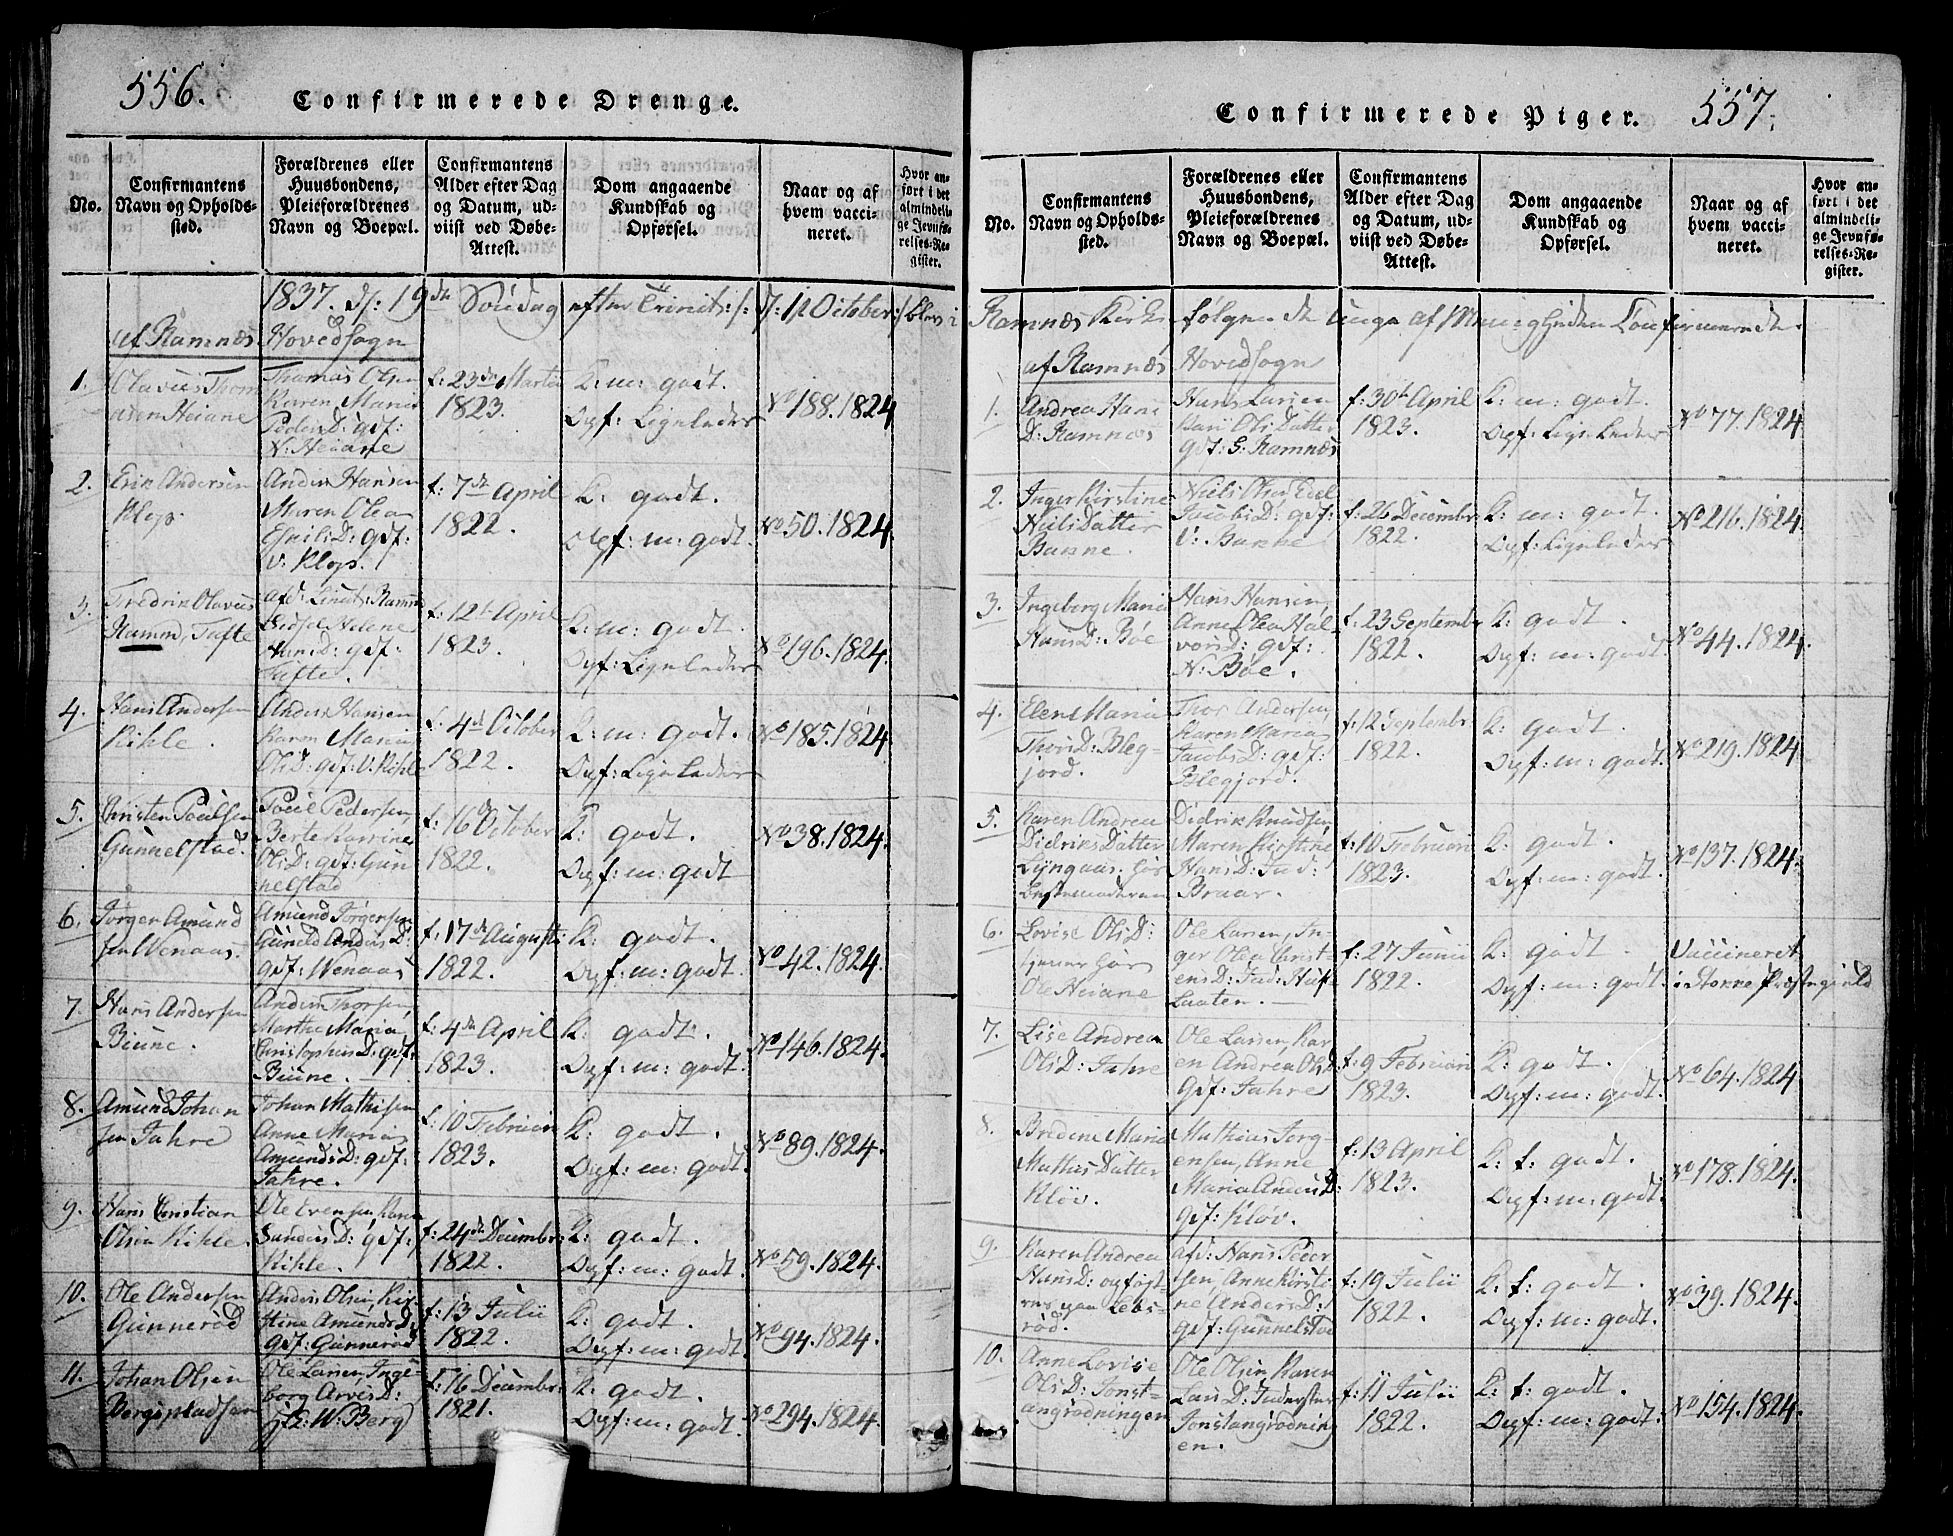 556.
Confirmerede Drenge.
No.
Confirmantens
Navn og Opholds-
sted.
Forældrenes eller
Huusbondens,
Pleieforældrenes
Navn og Boepæl.
Confirmantens
Alder efter Dag
og Datum, ud-
viist ved Døbe-
Attest.
Dom angaaende
Kundskab og
Opførsel.
Naar og af
hvem vacci-
neret.
Hvor an-
ført i det
almindeli-
ge Jevnfø-
relses-Re-
gister.
1837. d: 19de Søndag efter Trinit: d: 1 October blev i
af Ramnæs Hovedsogn
1.
Olavus Thom
Heiane
Thomas Olsen
Karen Marie
Peders D: gdf:
N: Heiane
f: 23de Martii
1823.
K: m: godt.
Opf: Ligeledes
No 188. 1824
2.
Erik Andersen
Klop.
Anders Hansen
Maren Olea
D: gdf:
V. Klop.
f: 7de April
1822.
K: godt.
Opf: m: godt.
No 50. 1824
3.
Fredrik Olavus
Ramm, Tufte
afd: Lieut: Ramm
Helene
Hans D: gdf:
Tufte.
f: 12t April
1823.
K: m: godt.
Opf: Ligeledes
No 196. 1824.
4.
Hans Andersen
Kihle.
Anders Hansen
Karen Maria
Ols D: gdf: V: Kihle
f: 4de October
1822.
K: m: godt.
Opf: Ligeledes
No 185. 1824
5.
Christen Poulsen
Gunnelstad.
Poul Pedersen,
Berte Karrine
Ols D: gdf: Gun
nelstad
f: 16 October
1822.
K: godt.
Opf: m: godt
No 38. 1824.
6.
Jørgen Amund
sen Wenaas.
Amund Jørgensen
Gunild Anders D:
gdf: Wenaas
f: 17de Augusti
1822.
K: godt.
Opf: m: godt.
No 42. 1824.
7.
Hans Andersen
Biune.
Anders Thorsen,
Marthe Maria
Christophers D: gdf:
Biune.
f: 4de April
1823.
K: godt.
Opf: m: godt.
No 146. 1824.
8.
Amund Johan
sen Jahre
Johan Mathisen
Anne Maria
Amunds D: gdf:
Jahre.
f: 10 Februari
1823.
K: godt.
Opf: m: godt.
No 89. 1824.
9.
Hans Christian
Olsen Kihle.
Ole Evensen, Karen
Sanders D: gdf:
Kihle.
f: 24de Decembr:
1822.
K: godt.
Opf: m: godt.
No 59. 1824.
10.
Ole Andersen
Gunnerød
Anders Olsen, Kir-
stine Amunds D:
gdf: Gunnerød
f: 13 Julii
1822.
K: godt.
Opf: m: godt.
No 94. 1824.
11.
Johan Olsen
Bergspladsen
Ole Larsen, Inge-
borg Arves D:
W: Berg
f: 16 Decembr:
1821.
K: godt.
Opf: m: godt.
No 294. 1824.
Confirmerede Piger.
557.
No.
Confirmantens
Navn og Opholds-
sted.
Forældrenes eller
Huusbondens,
Pleieforældrenes
Navn og Boepæl.
Confirmantens
Alder efter Dag
og Datum, ud-
viist ved Døbe-
Attest.
Dom angaaende
Kundskab og
Opførsel.
Naar og af
hvem vacci-
neret.
Hvor an-
ført i det
almindeli-
ge Jevnfø-
relses-Re-
gister.
Ramnæs Kirke følgende unge af Menigheden Confirmerede.
af Ramnæs Hovedsogn
1.
Andrea Hans
D: Ramnæs
Hans Larsen
Kari Ols Datter
gdf: G: Ramnæs
f: 30te April
1823.
K: m: godt.
Opf: Ligeledes
No 77. 1824
2.
Inger Kirstine
Niels Datter
Banne.
Niels Olsen, Edel
Jacobs D: gdf:
V: Banne
f: 26 Decembr
1822.
K: m: godt.
Opf: Ligeledes
No 216. 1824.
3.
Ingeborg Maria
Hans D: Böe
Hans Hansen,
Anne Olea Hal-
vors D: gdf:
N: Böe.
f: 23 Septembr
1822.
K: godt.
Opf: m: godt.
No 44. 1824.
4.
Elen Maria
Thors D: Bleg-
jord.
Thor Andersen,
Karen Maria
Jacobs D: gdf:
Blegjord.
f: 12 Septembr
1822.
K: godt.
Opf: m: godt.
No 219. 1824
5.
Karen Andrea
Didriks Datter
Lyngaas. hos
Bestemoderen
Didrik Knudsen,
Maren Kirstine
Hans D: Ind:
Braar.
f: 10 Februari
1823.
K: godt.
Opf: m: godt.
No 137. 1824.
6.
Lovise Ols D:
tjener hos
Ole Heiane
Ole Larsen, In-
ger Olea Christ
ens D: Ind:
Laaten.
f: 27 Junii
1822.
K: godt.
Opf: m: godt.
Vaccineret
i Storre Præstegield
7.
Lise Andrea
Ols D: Jahre
Ole Larsen, Kar
en Andrea Ols D:
Gdf: Jahre
f: 9 Februari
1823.
K: godt.
Opf: m: godt.
No 64. 1824
8.
Bredine Maria
Mathis Datter
Klöv.
Mathias Jørg-
ensen, Anne
Maria Anders D:
Gdf: Klöv.
f: 13 April
1823.
K: t: godt.
Opf: m: godt.
No 178. 1824.
9.
Karen Andrea
Hans D: opföst
res paa Lebs-
röd.
afd: Hans Peder
sen, Anne Kirsti-
ne Anders D:
gdf: Gunnelstad
f: 19 Julii
1822.
K: t: godt.
Opf: m: godt.
No 39. 1824.
10.
Anne Lovise
Ols D: Jonst-
angrødningen
Ole Olsen, Karen
Lars D:
Jonstangrødning
en.
f: 11 Julii
1822.
K: t: godt.
Opf: m: godt.
No 154. 1824.